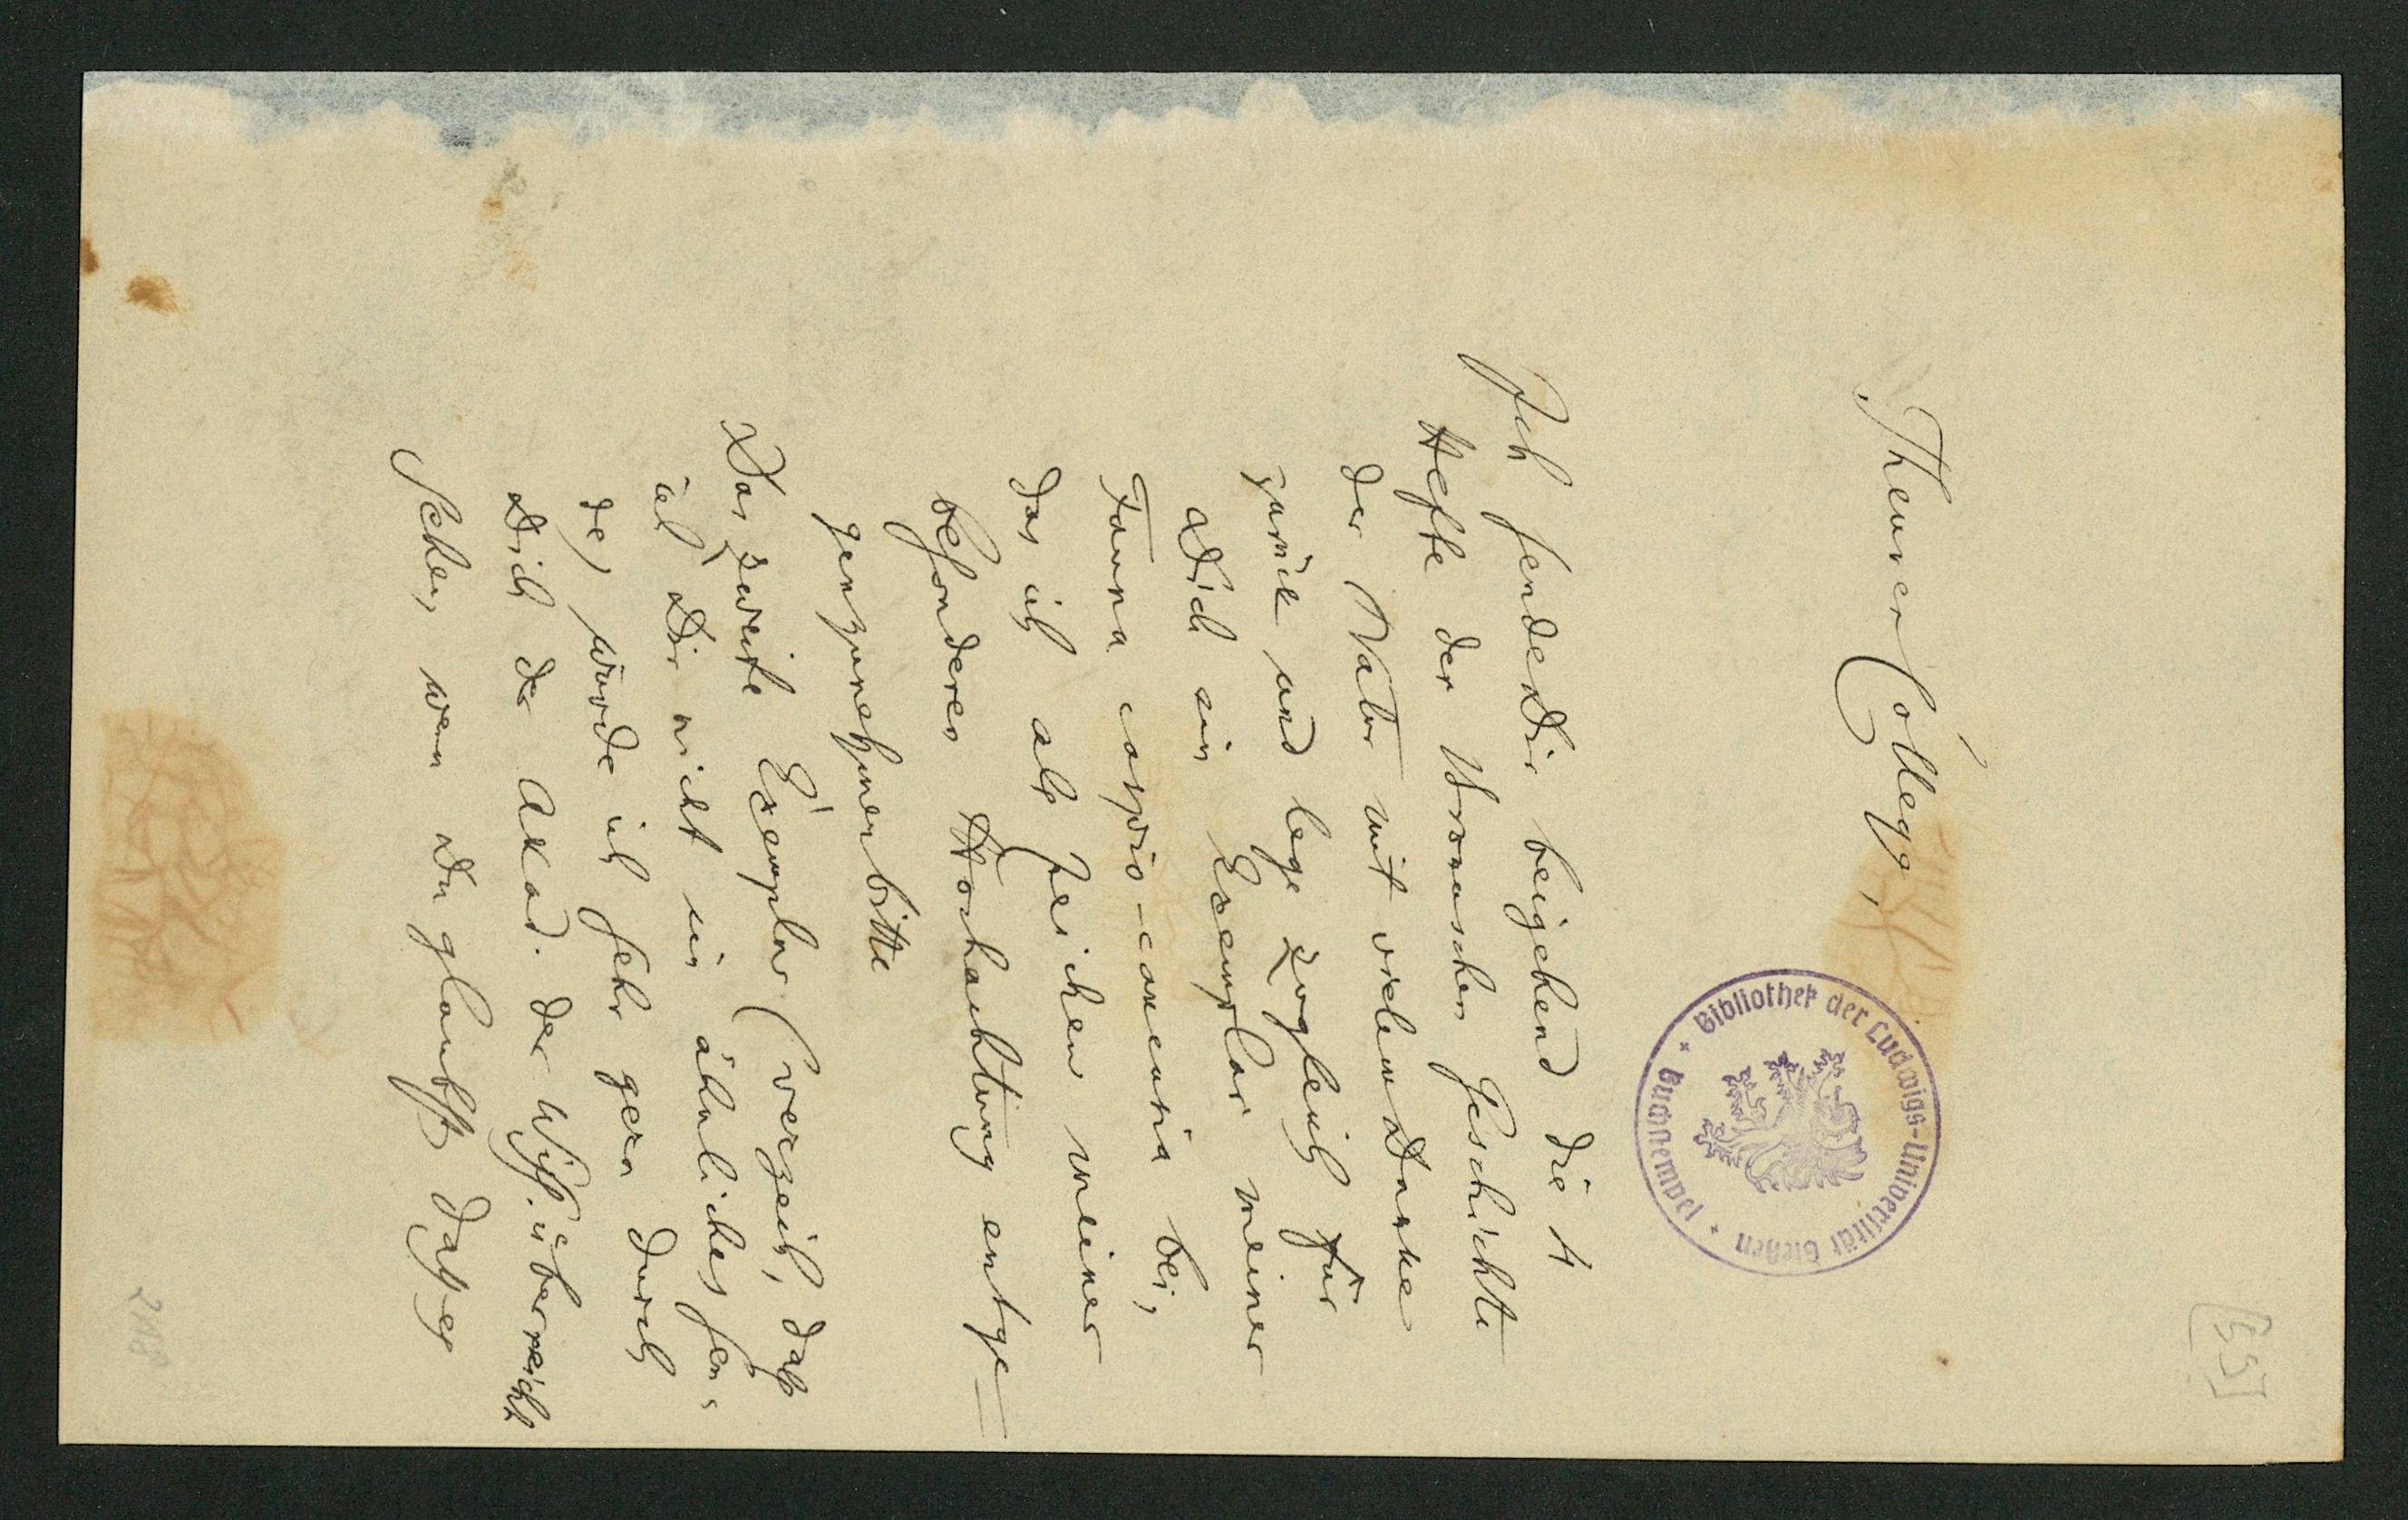 [53]
Theurer College,
Bibliothek der Ludwigs-Universität Gießen
Ausgaestempel
Ich sende Dir beigehend die 4
Hefte der Geschichte
der Natur mit vielem Danke
zurück und lege zugleich für
Dich ein Exemplar meiner
Fauna caspio-caucasia bei,
das ich als Zeichen meiner
besonderen Hochachtung entge=
genzunehmen bitte
Das zweite Exemplar (verzeih, daß
ich Dir nicht ein ähnliches sen-
de) würde ich sehr gern durch
Dich der Akad. der Wiss. überreicht
sehen, wenn Du glaubst daß es